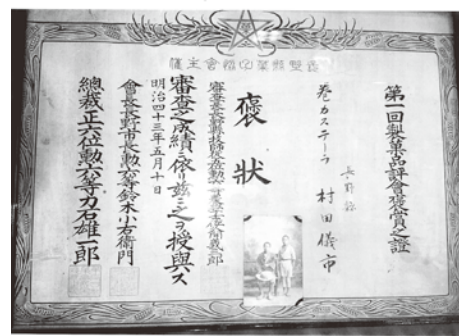 主催會
第一回製菓品評會褒賞之證
長野縣
巻カステーラ 村田儀市
褒狀
審査之成績ニ依リ茲ニ之ヲ授與ス
明治四十三年五月十日
會長長野市長勲六等鈴木小右衛門
總裁正六位勲六等力石雄一郎